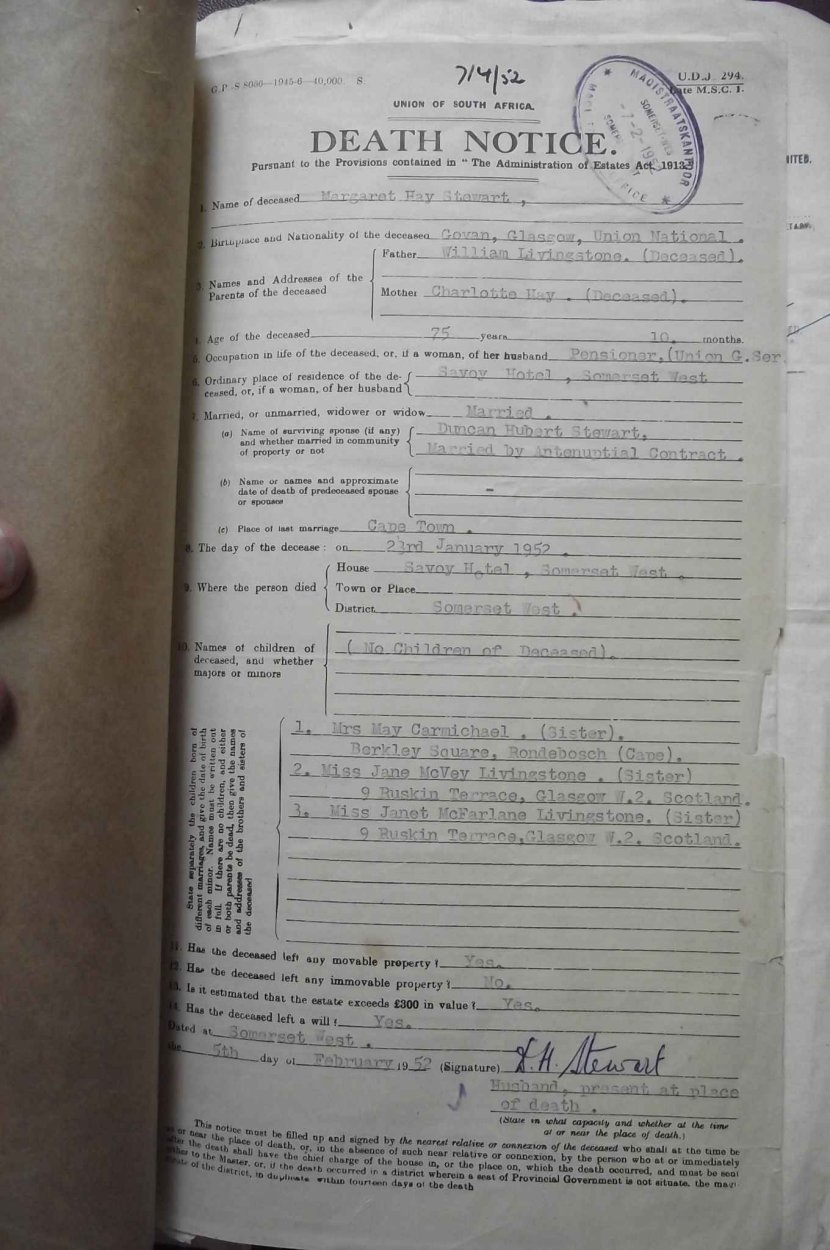 7/4/52
G.P.-S 8056—1945-6—40,000. S.
U.D.J. 294.
M.S.C. 1.
UNION OF SOUTH AFRICA.
DEATH NOTICE.
MAGISTRAATSKANTOOR
Pursuant to the Provisions contained in "The Administration of Estates Act, 1913."
1. Name of deceased Margaret Hay Stewart ,
2. Birthplace and Nationality of the deceased Govan, Glasgow, Union National .
3. Names and Addresses of the Parents of the deceased
Father William Livingstone. (Deceased).
Mother Charlotte Hay . (Deceased).
Age of the deceased 75 years 10. months.
5. Occupation in life of the deceased, or, if a woman, of her husband Pensioner,(Union G.Ser
6. Ordinary place of residence of the de- Savoy Hotel , Somerset West
ceased, or, if a woman, of her husband
7. Married, or unmarried, widower or widow Married .
(a) Name of surviving spouse (if any) Duncan Hubert Stewart,
and whether married in community Married by Antenuptial Contract .
of property or not
(b) Name or names and approximate
date of death of predeceased spouse –
or spouses
(c) Place of last marriage Cape Town .
8. The day of the decease : on 23rd January 1952 .
9. Where the person died
House Savoy Hotel , Somerset West .
Town or Place
District Somerset West )
10. Names of children of
deceased, and whether ( No Children of Deceased).
majors or minors
State separately the children born of
different marriages, and give the date of birth
of each minor. Names must be written out
in full. If there are no children, and either
or both parents be dead, then give the names
and addresses of the brothers and sisters of
the deceased
1. Mrs May Carmichael . (Sister).
Berkley Square, Rondebosch (Cape).
2. Miss Jane McVey Livingstone . (Sister)
9 Ruskin Terrace, Glasgow W.2. Scotland.
3. Miss Janet McFarlane Livingstone. (Sister)
9 Ruskin Terrace,Glasgow W.2. Scotland.
11. Has the deceased left any movable property ? Yes.
12. Has the deceased left any immovable property ? No.
13. Is it estimated that the estate exceeds £300 in value ? Yes.
14. Has the deceased left a will ? Yes.
Dated at Somerset West .
the 5th day of February 1952 (Signature) D.H. Stewart
Husband, present at place
of death .
(State in what capacity and whether at the time
at or near the place of death.)
This notice must be filled up and signed by the nearest relative or connexion of the deceased who shall at the time be
or near the place of death, or, in the absence of such near relative or connexion, by the person who at or immediately
after the death shall have the chief charge of the house in, or the place on, which the death occurred, and must be sent
to the Master, or, if the death occurred in a district wherein a seat of Provincial Government is not situate, the
of the district, in duplicate within fourteen days of the death
ITED.